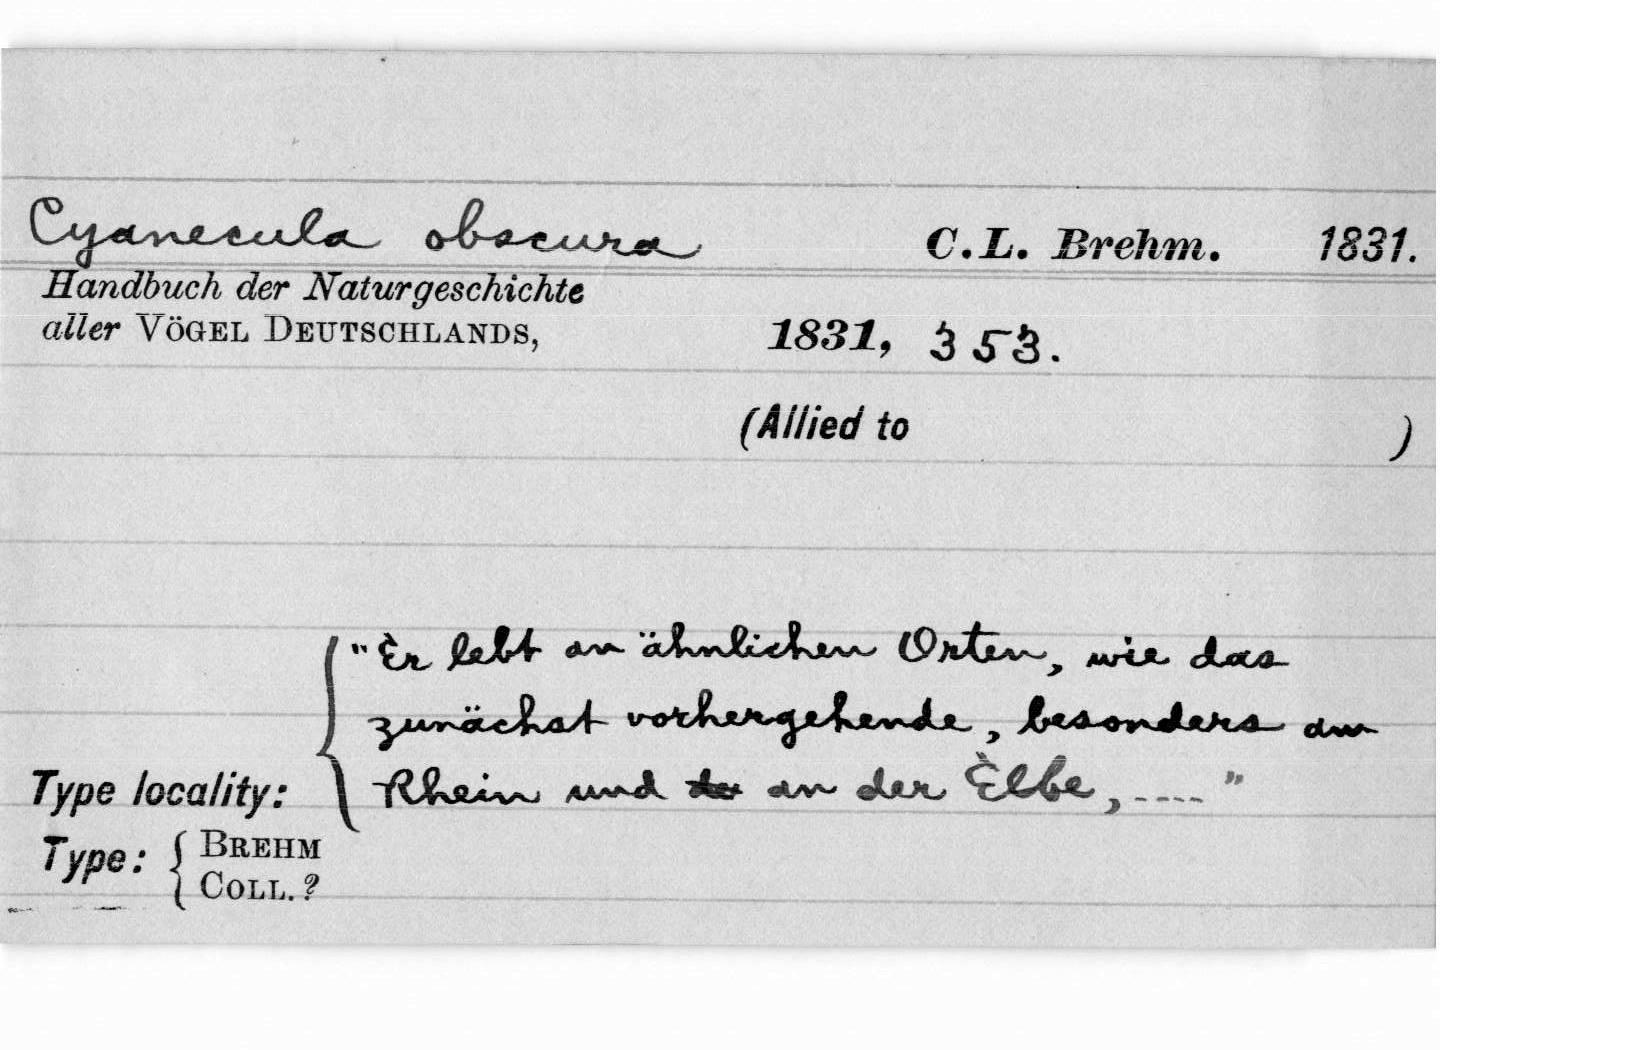 Cyanecula obscura C.L. Brehm. 1831.
Handbuch der Naturgeschichte
aller VÖGEL DEUTSCHLANDS, 1831, 353.
(Allied to )
"Er lebt an ähnlichen Orten, wie das
zunächst vorhergehende, besonders am
Type locality: Rhein und der an der Elbe, ---- "
Type: { BREHM
COLL. ?